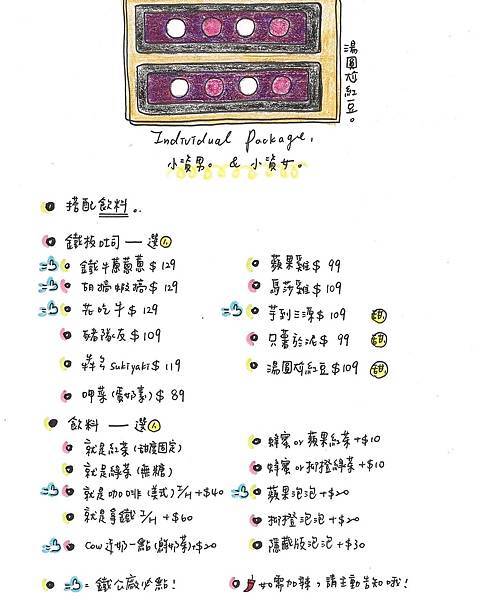 湯圓尬紅豆。
Individual Package,
小資男。 & 小資女。
搭配飲料。
鐵板吐司 — 選1
鐵牛蔥蔥蔥 $129
胡搞蝦搞 $129
花吃牛 $129
豬隊友 $109
犇犇 sukiyaki $119
呷菜(蛋奶素) $89
蘋果雞 $99
馬莎雞 $109
芋到三澤 $109 甜
只薯於泥 $99 甜
湯圓尬紅豆 $109 甜
飲料 — 選1
就是紅茶(甜度固定)
就是綠茶(無糖)
就是咖啡(美式) I/H +$40
就是拿鐵 I/H +$60
Cow 送奶一點(鮮奶茶)+$20
蜂蜜 or 蘋果紅茶 +$10
蜂蜜 or 柳橙綠茶 +$10
蘋果泡泡 +$20
柳橙泡泡 +$20
隱藏版泡泡 +$30
= 鐵公廠必點!
如需加辣,請主動告知哦!